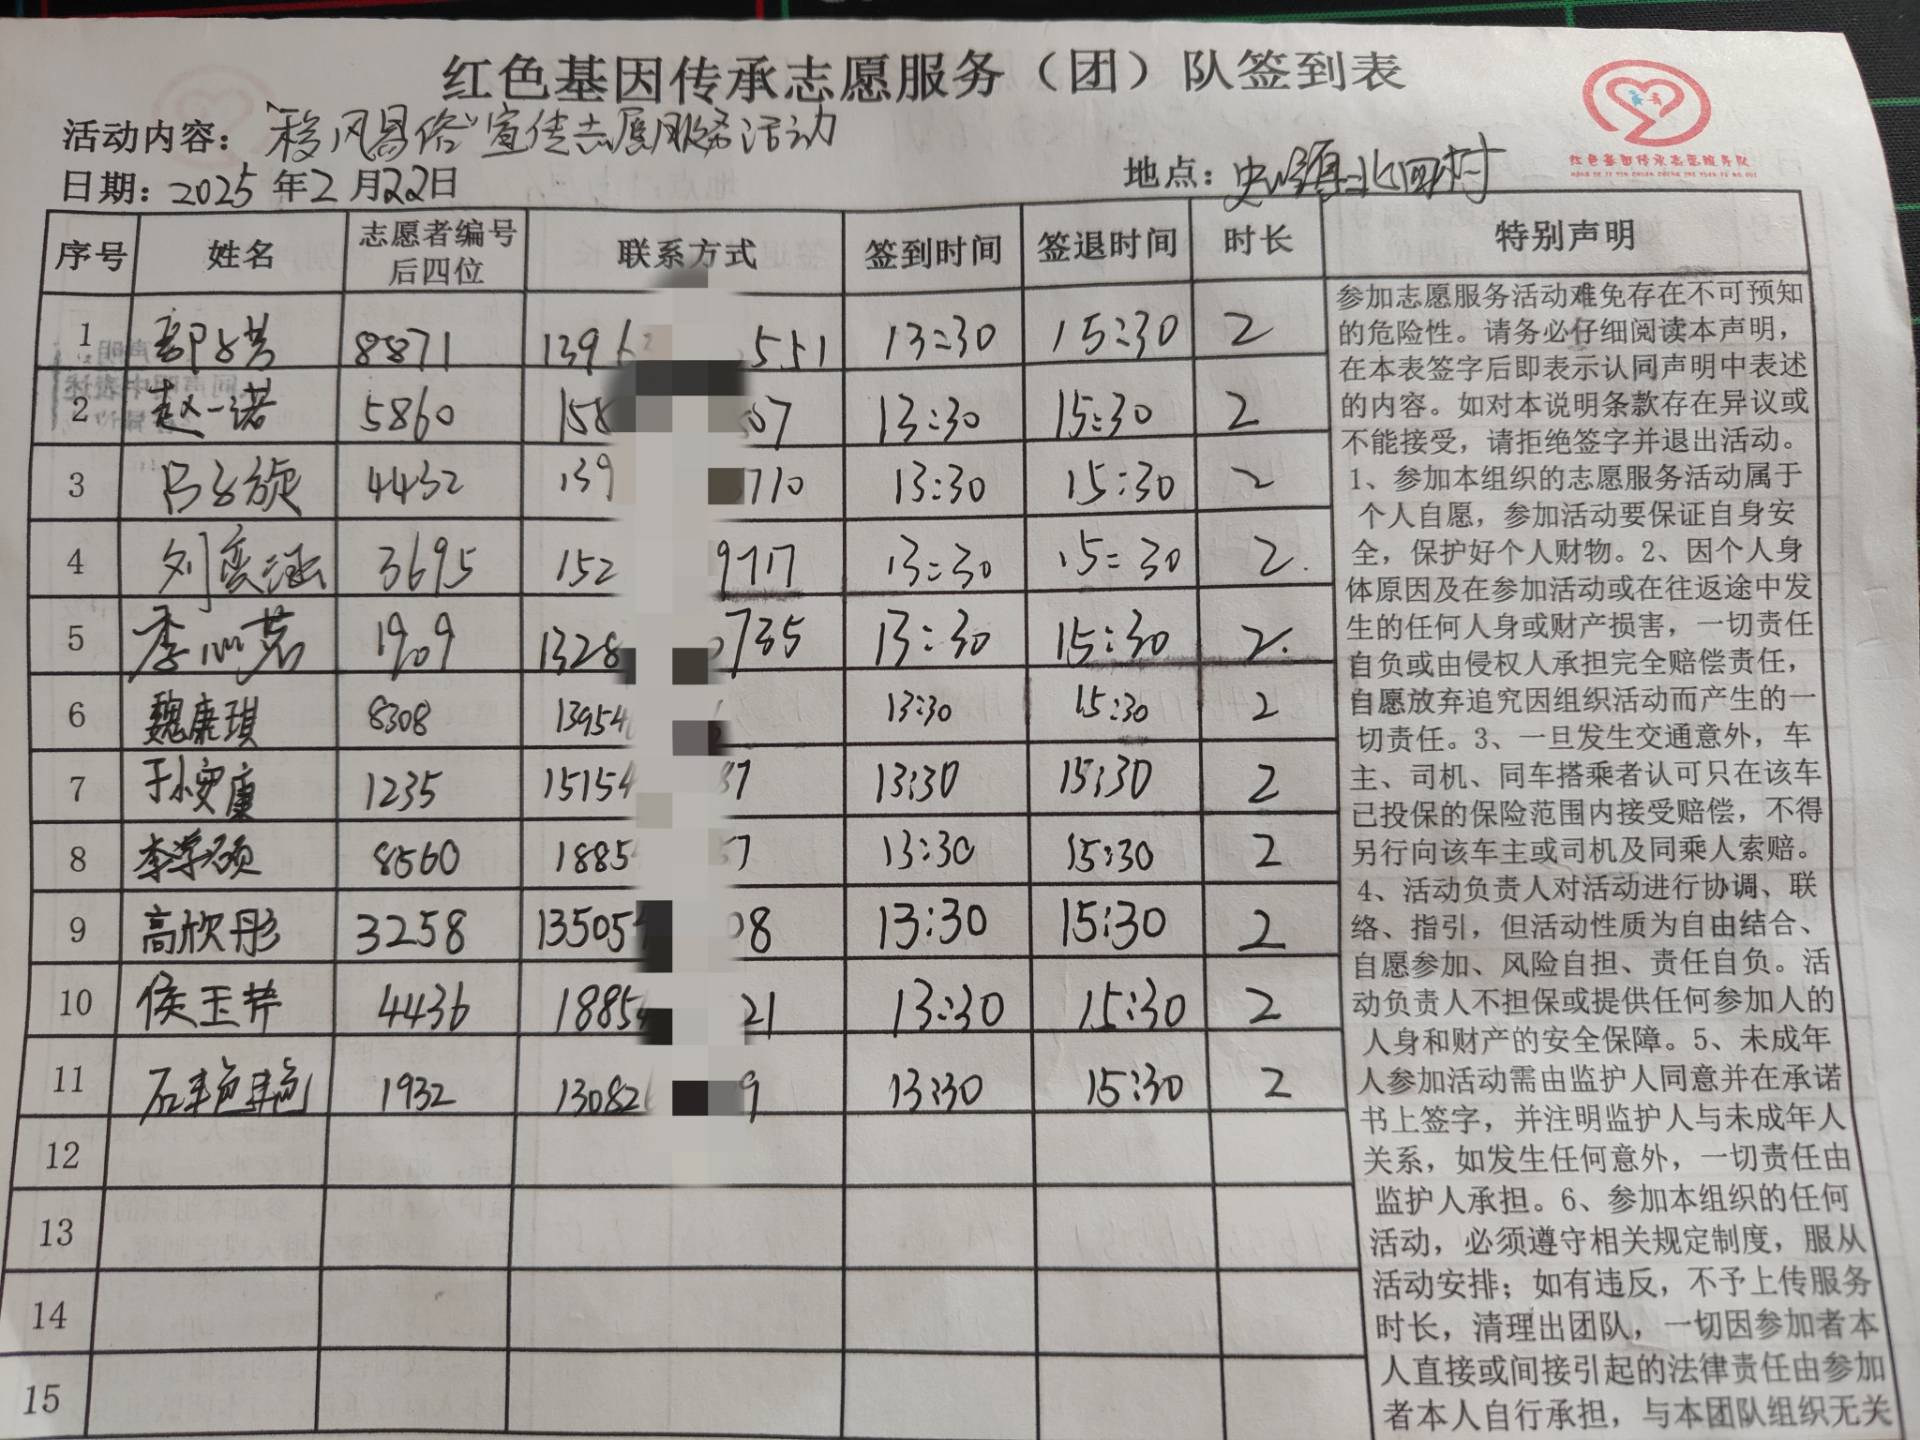 红色基因传承志愿服务（团）队签到表
活动内容：“移风易俗”宣传志愿服务活动
日期：2025年2月22日
地点：北田村
红色基因传承志愿服务队
序号 姓名 志愿者编号后四位 联系方式 签到时间 签退时间 时长 特别声明
1 8871 1396 551 13:30 15:30 2
2 赵一诺 5860 158 07 13:30 15:30 2
3 吕子旋 4432 139 710 13:30 15:30 2
4 刘奕涵 3695 152 9717 13:30 15:30 2.
5 李心茗 1909 1328 735 13:30 15:30 2.
6 魏康琪 8308 13954 13:30 15:30 2
7 1235 15154 37 13:30 15:30 2
8 李学硕 8560 1885 57 13:30 15:30 2
9 高欣彤 3258 13505 08 13:30 15:30 2
10 侯玉芹 4436 1885 21 13:30 15:30 2
11 石艳艳 1932 13082 9 13:30 15:30 2
12
13
14
15
参加志愿服务活动难免存在不可预知
的危险性。请务必仔细阅读本声明，
在本表签字后即表示认同声明中表述
的内容。如对本说明条款存在异议或
不能接受，请拒绝签字并退出活动。
1、参加本组织的志愿服务活动属于
个人自愿，参加活动要保证自身安
全，保护好个人财物。2、因个人身
体原因及在参加活动或在往返途中发
生的任何人身或财产损害，一切责任
自负或由侵权人承担完全赔偿责任，
自愿放弃追究因组织活动而产生的一
切责任。3、一旦发生交通意外，车
主、司机、同车搭乘者认可只在该车
已投保的保险范围内接受赔偿，不得
另行向该车主或司机及同乘人索赔。
4、活动负责人对活动进行协调、联
络、指引，但活动性质为自由结合、
自愿参加、风险自担、责任自负。活
动负责人不担保或提供任何参加人的
人身和财产的安全保障。5、未成年
人参加活动需由监护人同意并在承诺
书上签字，并注明监护人与未成年人
关系，如发生任何意外，一切责任由
监护人承担。6、参加本组织的任何
活动，必须遵守相关规定制度，服从
活动安排；如有违反，不予上传服务
时长，清理出团队，一切因参加者本
人直接或间接引起的法律责任由参加
者本人自行承担，与本团队组织无关